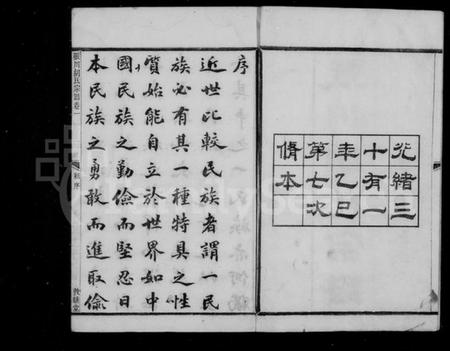 光緒三
十有一
年乙巳
第七次
脩本
序
近世比較民族者謂一民
族必有其一種特具之性
質始能自立於世界如中
國民族之勤儉而堅忍日
本民族之勇敢而進取儉
胡氏宗譜卷一
序